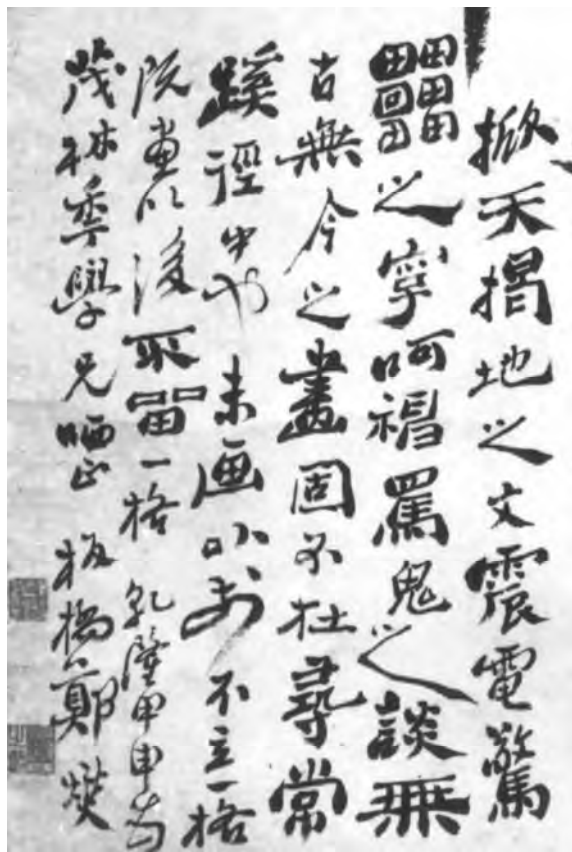 掀天揭地之文震電驚
靁之字呵神罵鬼之談無
古無今之畫固不在尋常
蹊徑中也未画以前不立一格
既畫以後不留一格 乾隆甲申為
茂林秊學兄哂正 板橋鄭燮